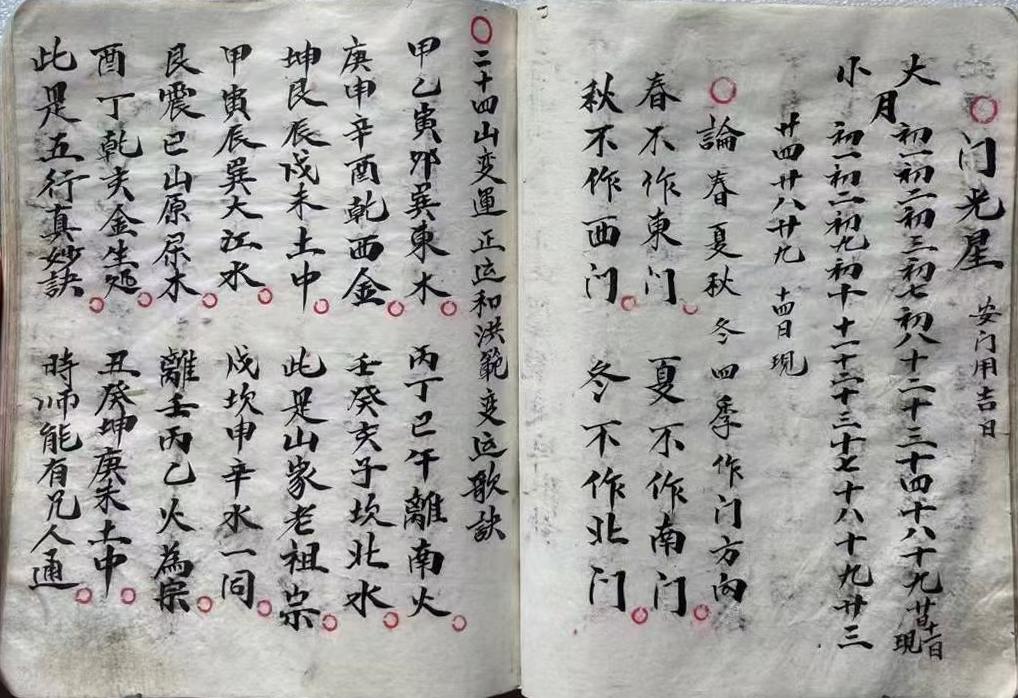 门光星 安门用吉日
大月初一初二初三初七初八十二十三十四十八十九廿
小月初一初二初九初十十一十二十三十七十八十九廿三
廿四廿八廿九 十四日現
論春夏秋冬四季作门方向
春不作東门 夏不作南门
秋不作西门 冬不作北门
二十四山变運正运和洪範变运歌訣
甲乙寅卯巽東木 丙丁巳午離南火
庚申辛酉乾西金 壬癸亥子坎北水
坤艮辰戌未土中 此是山家老祖宗
甲寅辰巽大江水 戌坎申辛水一同
艮震巳山原属木 離壬丙乙火為宗
酉丁乾亥金生处 丑癸坤庚未土中
此是五行真妙訣 時师能有几人通